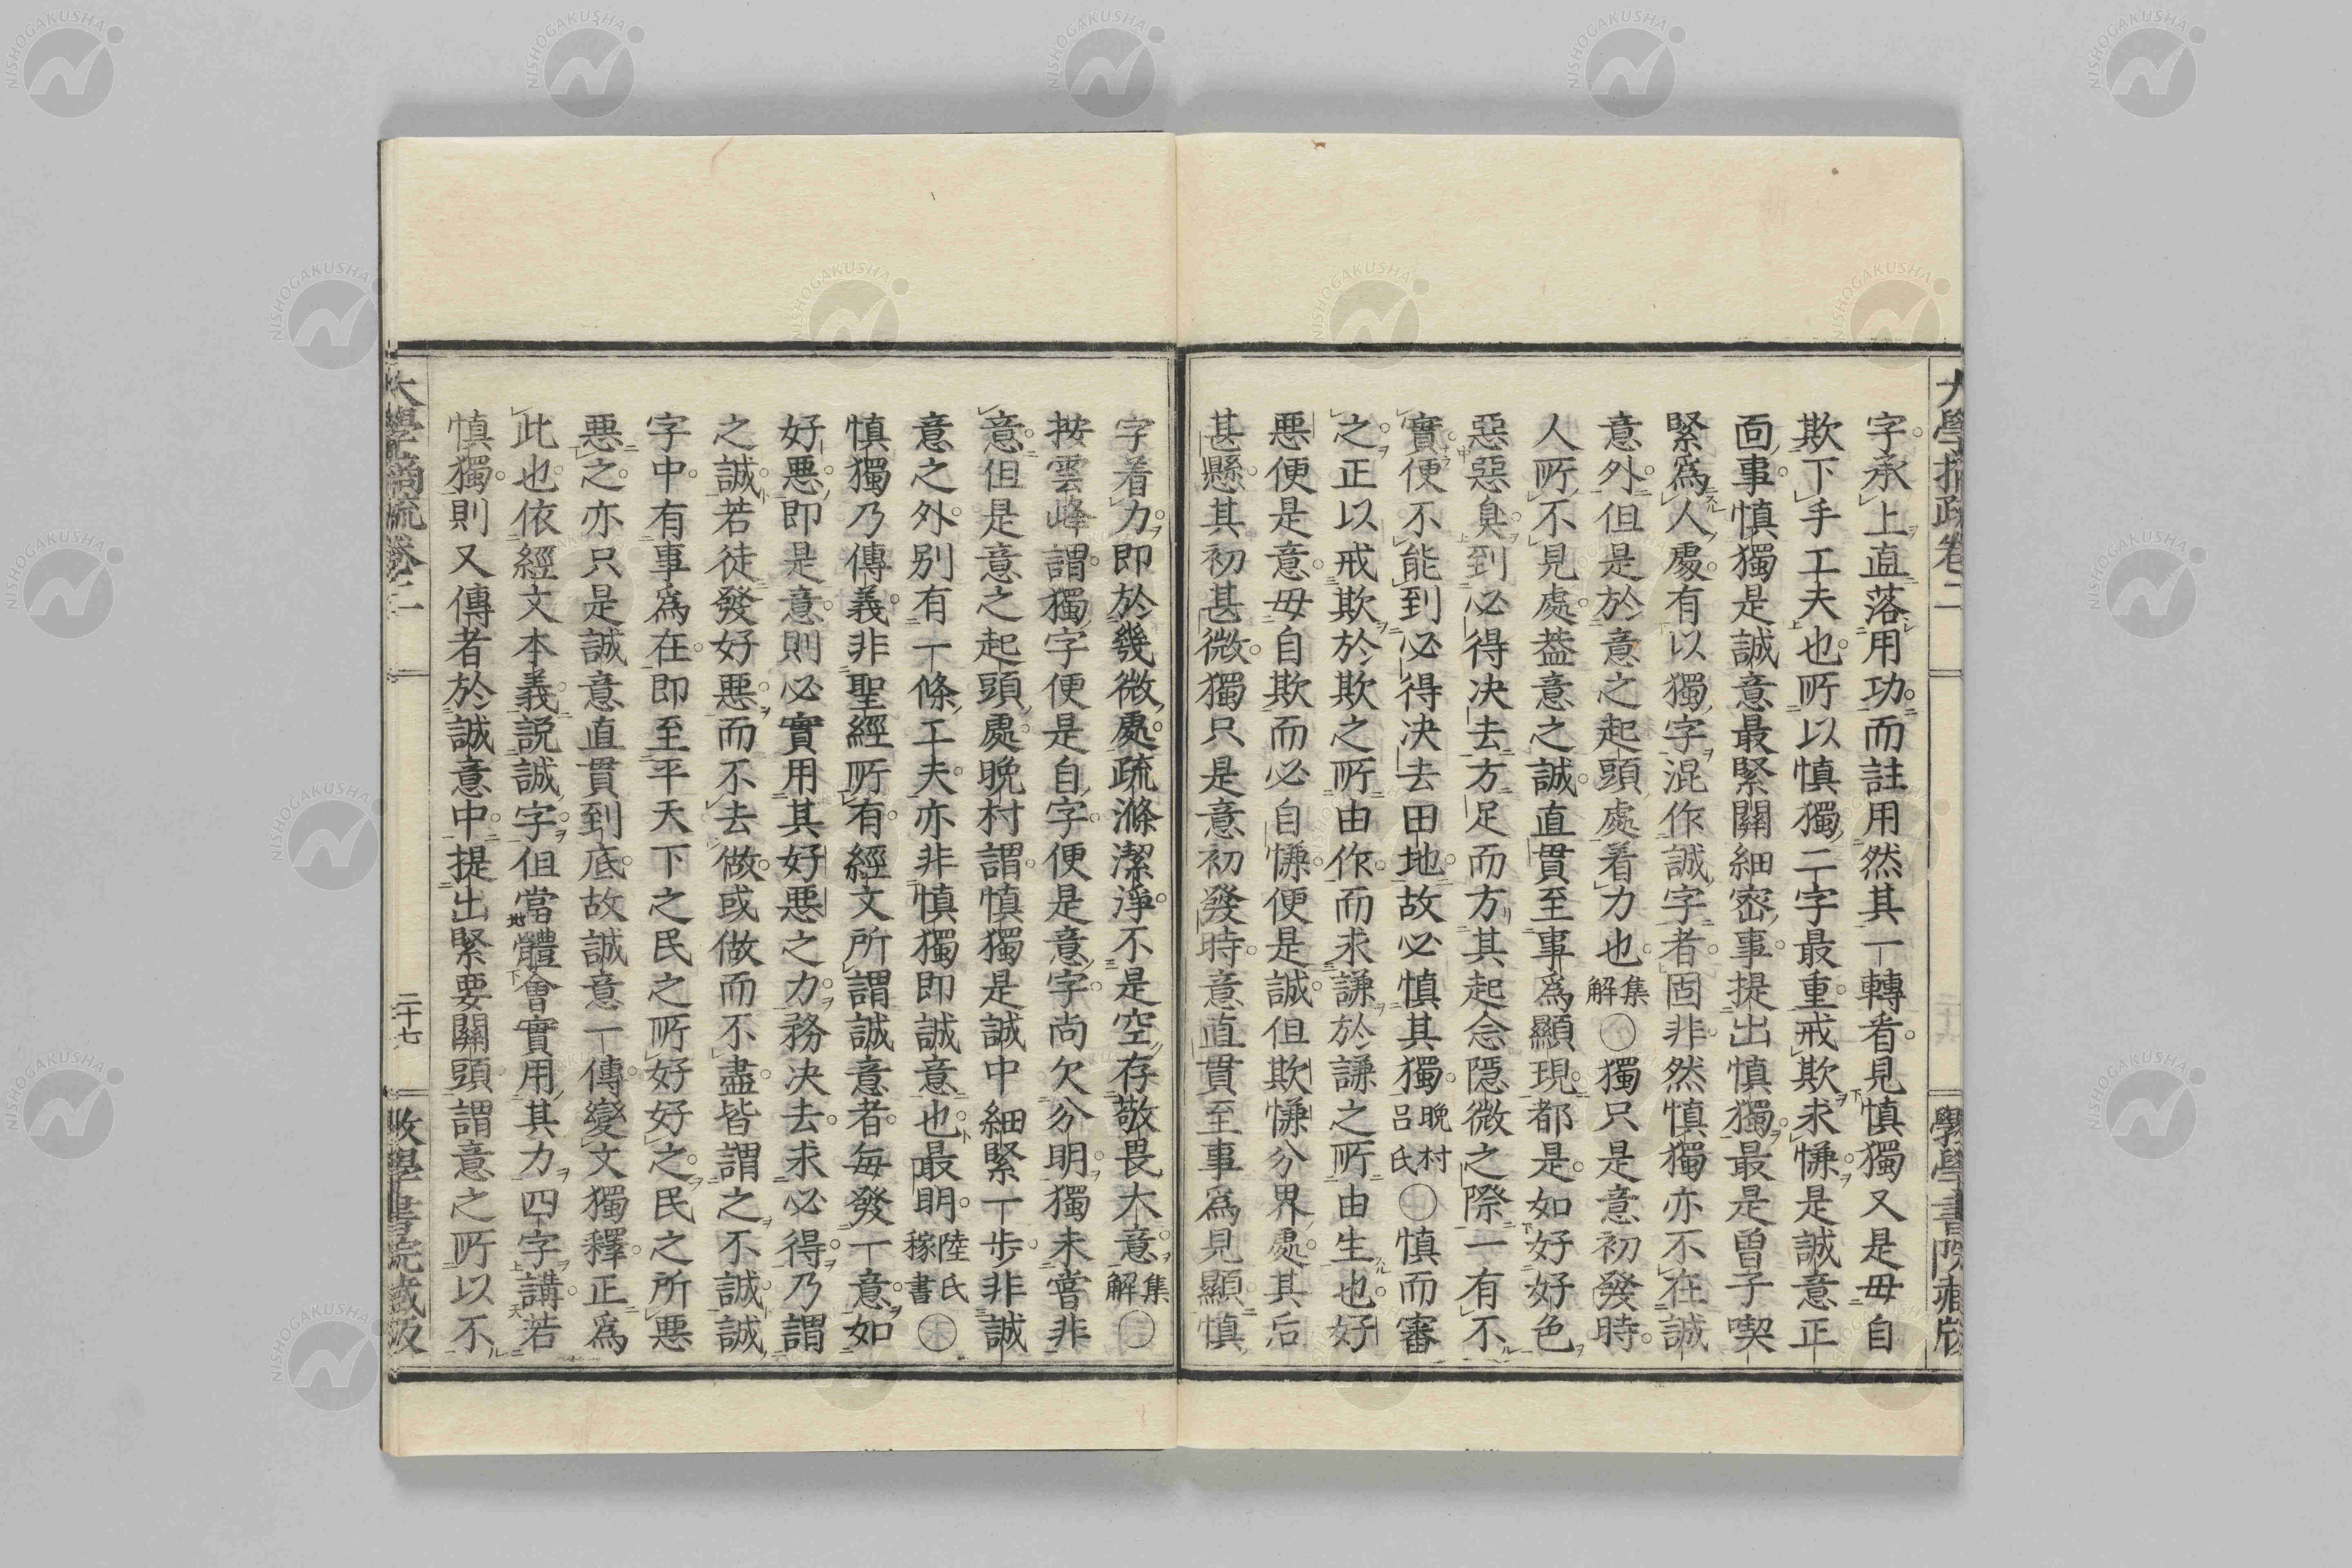 字承上直落用功而註用然其一轉看見慎獨又是毋自
欺下手工夫也所以慎獨二字最重戒欺求慊是誠意正
面事慎獨是誠意最緊關細密事提出慎獨最是曾子喫
緊為人處有以獨字混作誠字者固非然慎獨亦不在誠
意外但是於意之起頭處着力也集解〇獨只是意初發時
人所不見處葢意之誠直貫至事為顯現都是如好好色
惡惡臭到必得決去方足而方其起念隱微之際一有不
實便不能到必得決去田地故必慎其獨晚村呂氏〇慎而審
之正以戒欺於欺之所由作而求謙於謙之所由生也好
惡便是意毋自欺而必自慊便是誠但欺慊分界處其后
甚懸其初甚微獨只是意初發時意直貫至事為見顯慎
字着力即於幾微處疏滌潔淨不是空存敬畏大意集解〇
按雲峰謂獨字便是自字便是意字尚欠分明獨未嘗非
意但是意之起頭處晚村謂慎獨是誠中細緊一步非誠
意之外別有一條工夫亦非慎獨即誠意也最明陸氏稼書〇
慎獨乃傳義非聖經所有經文所謂誠意者每發一意如
好惡即是意則必實用其好惡之力務決去求必得乃謂
之誠若徒發好惡而不去做或做而不盡皆謂之不誠誠
字中有事為在即至平天下之民之所好好之民之所惡
惡之亦只是誠意直貫到底故誠意一傳變文獨釋正為
此也依經文本義說誠字但當體會實用其力四字講若
慎獨則又傳者於誠意中提出緊要關頭謂意之所以不
大學摘疏卷二
二十七
斅學書院藏版
NISHOGAKUSHA